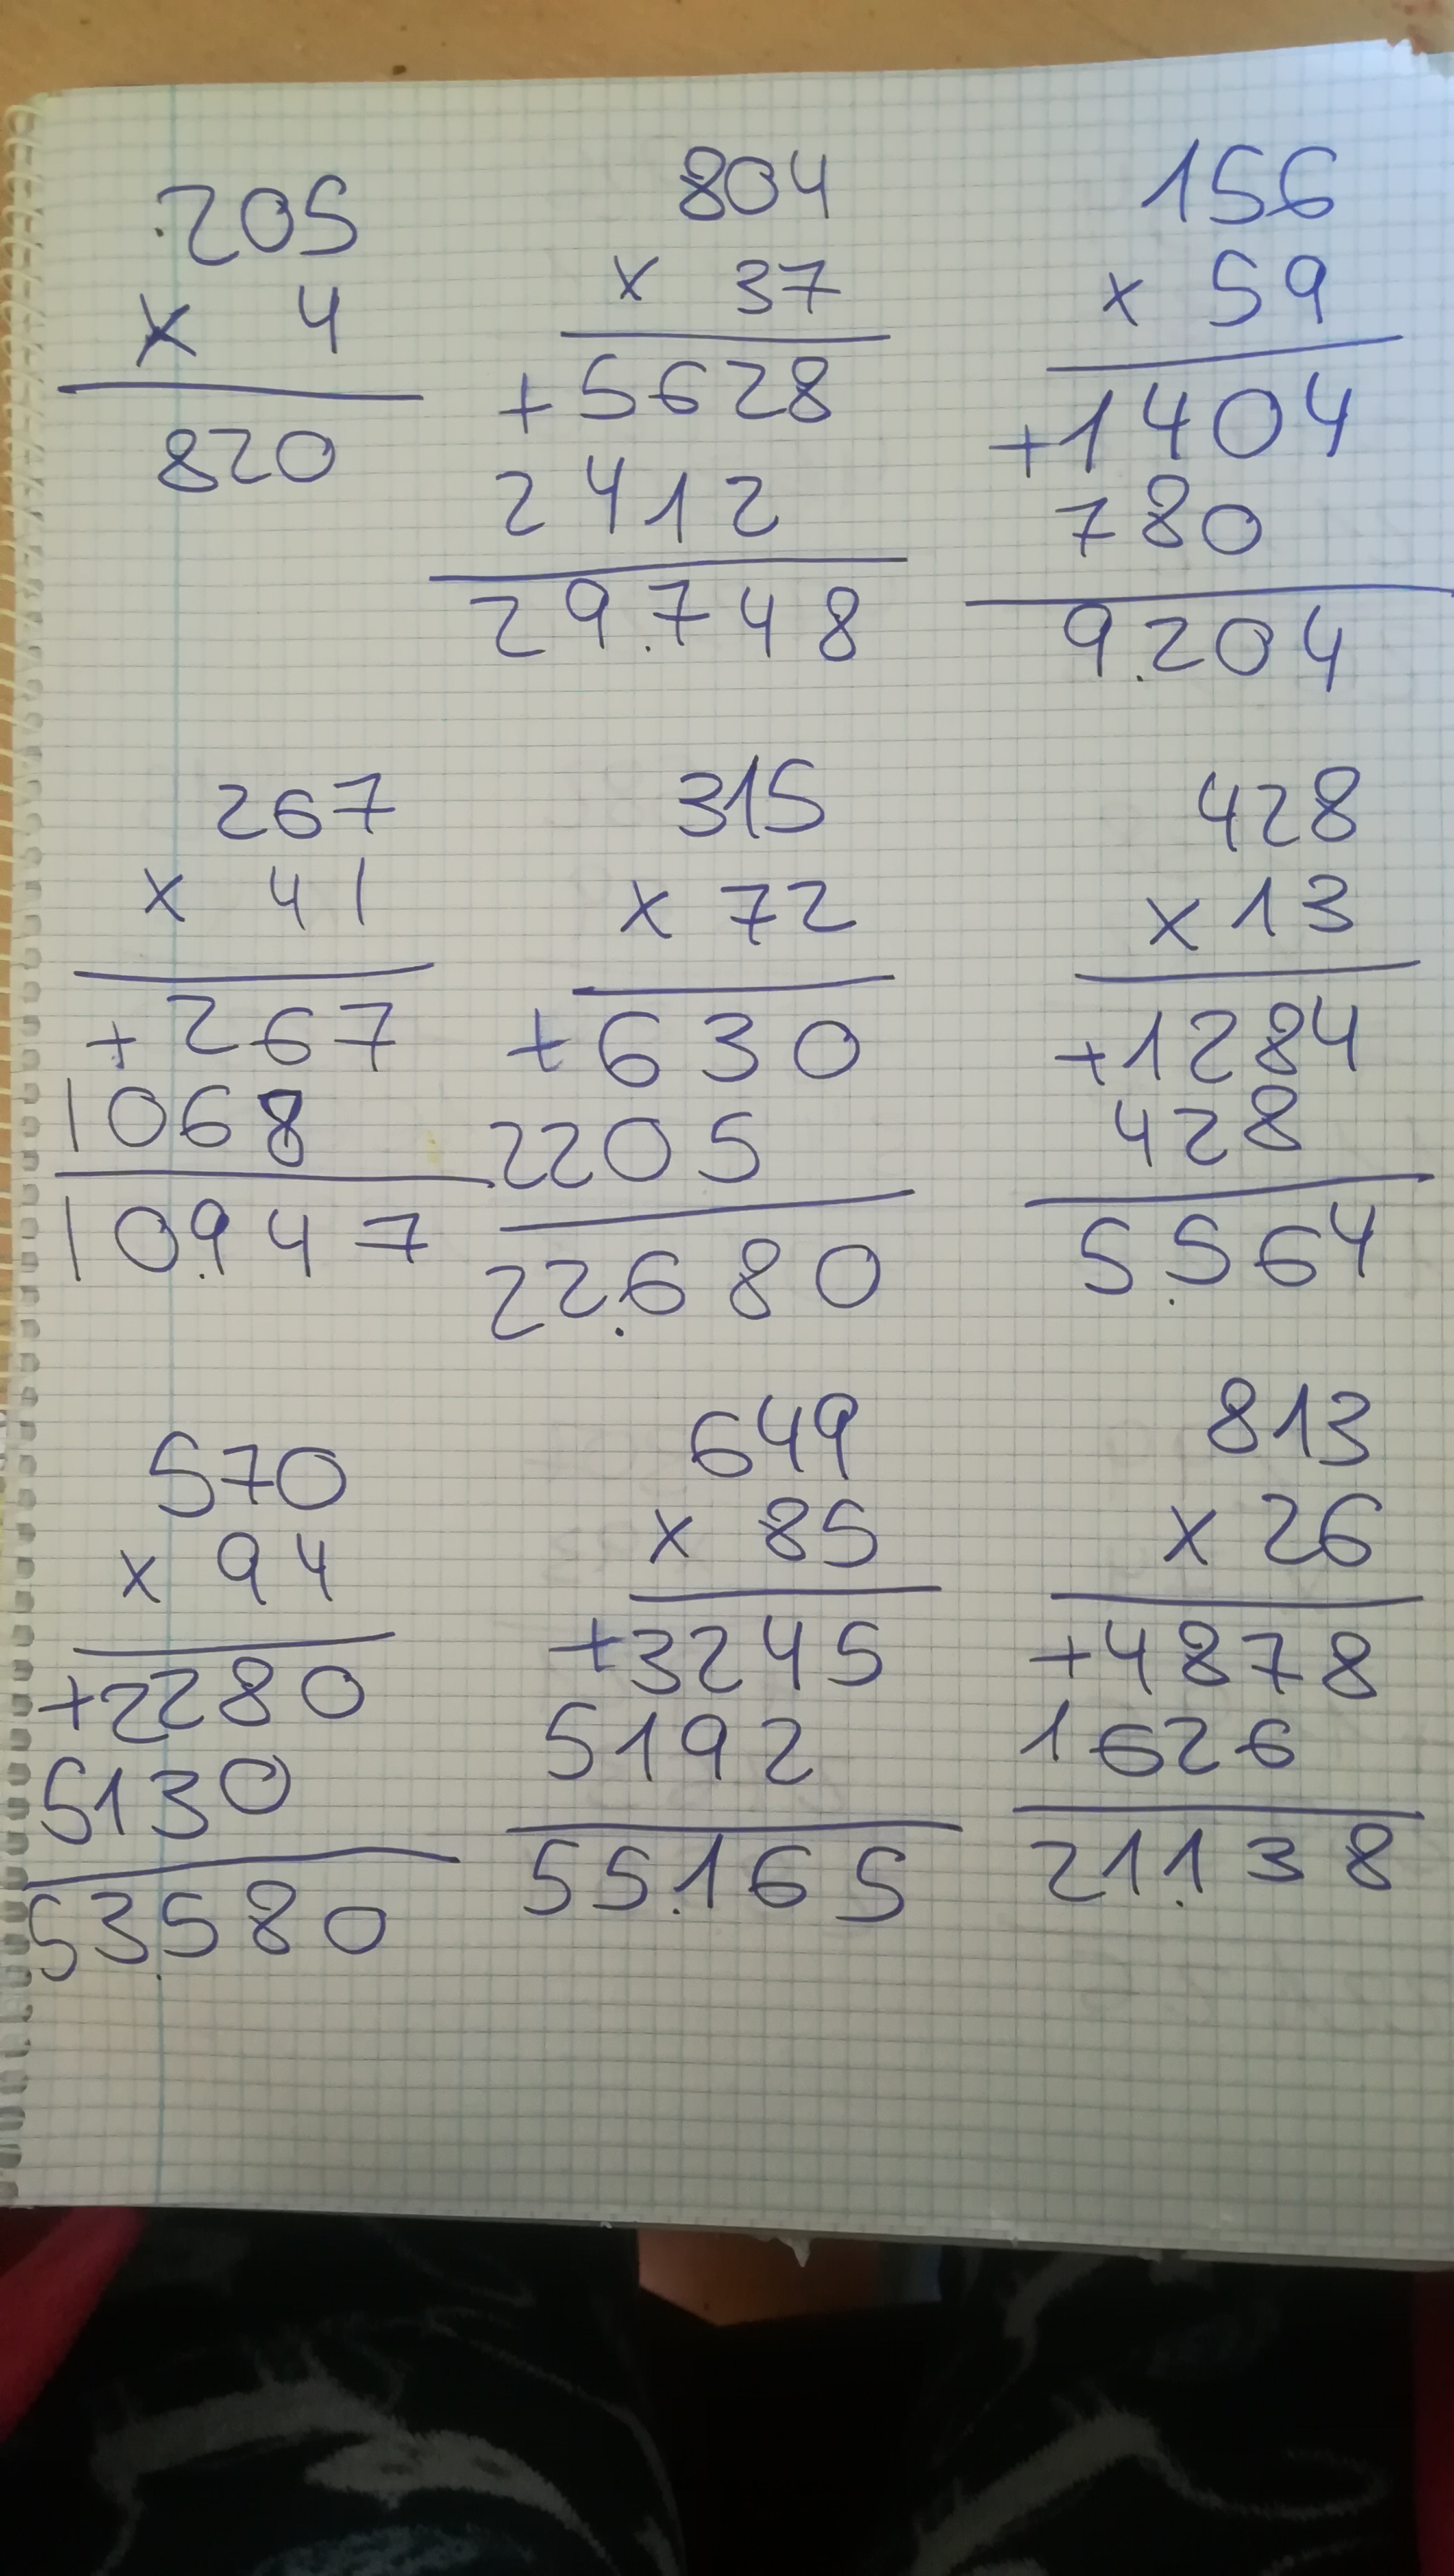 205
x 4
820
804
x 37
+5628
2412
29.748
156
x 59
+1404
780
9.204
267
x 41
+267
1068
10.947
315
x 72
+630
2205
22.680
428
x 13
+1284
428
5.564
570
x 94
+2280
5130
53.580
649
x 85
+3245
5192
55.165
813
x 26
+4878
1626
21.138